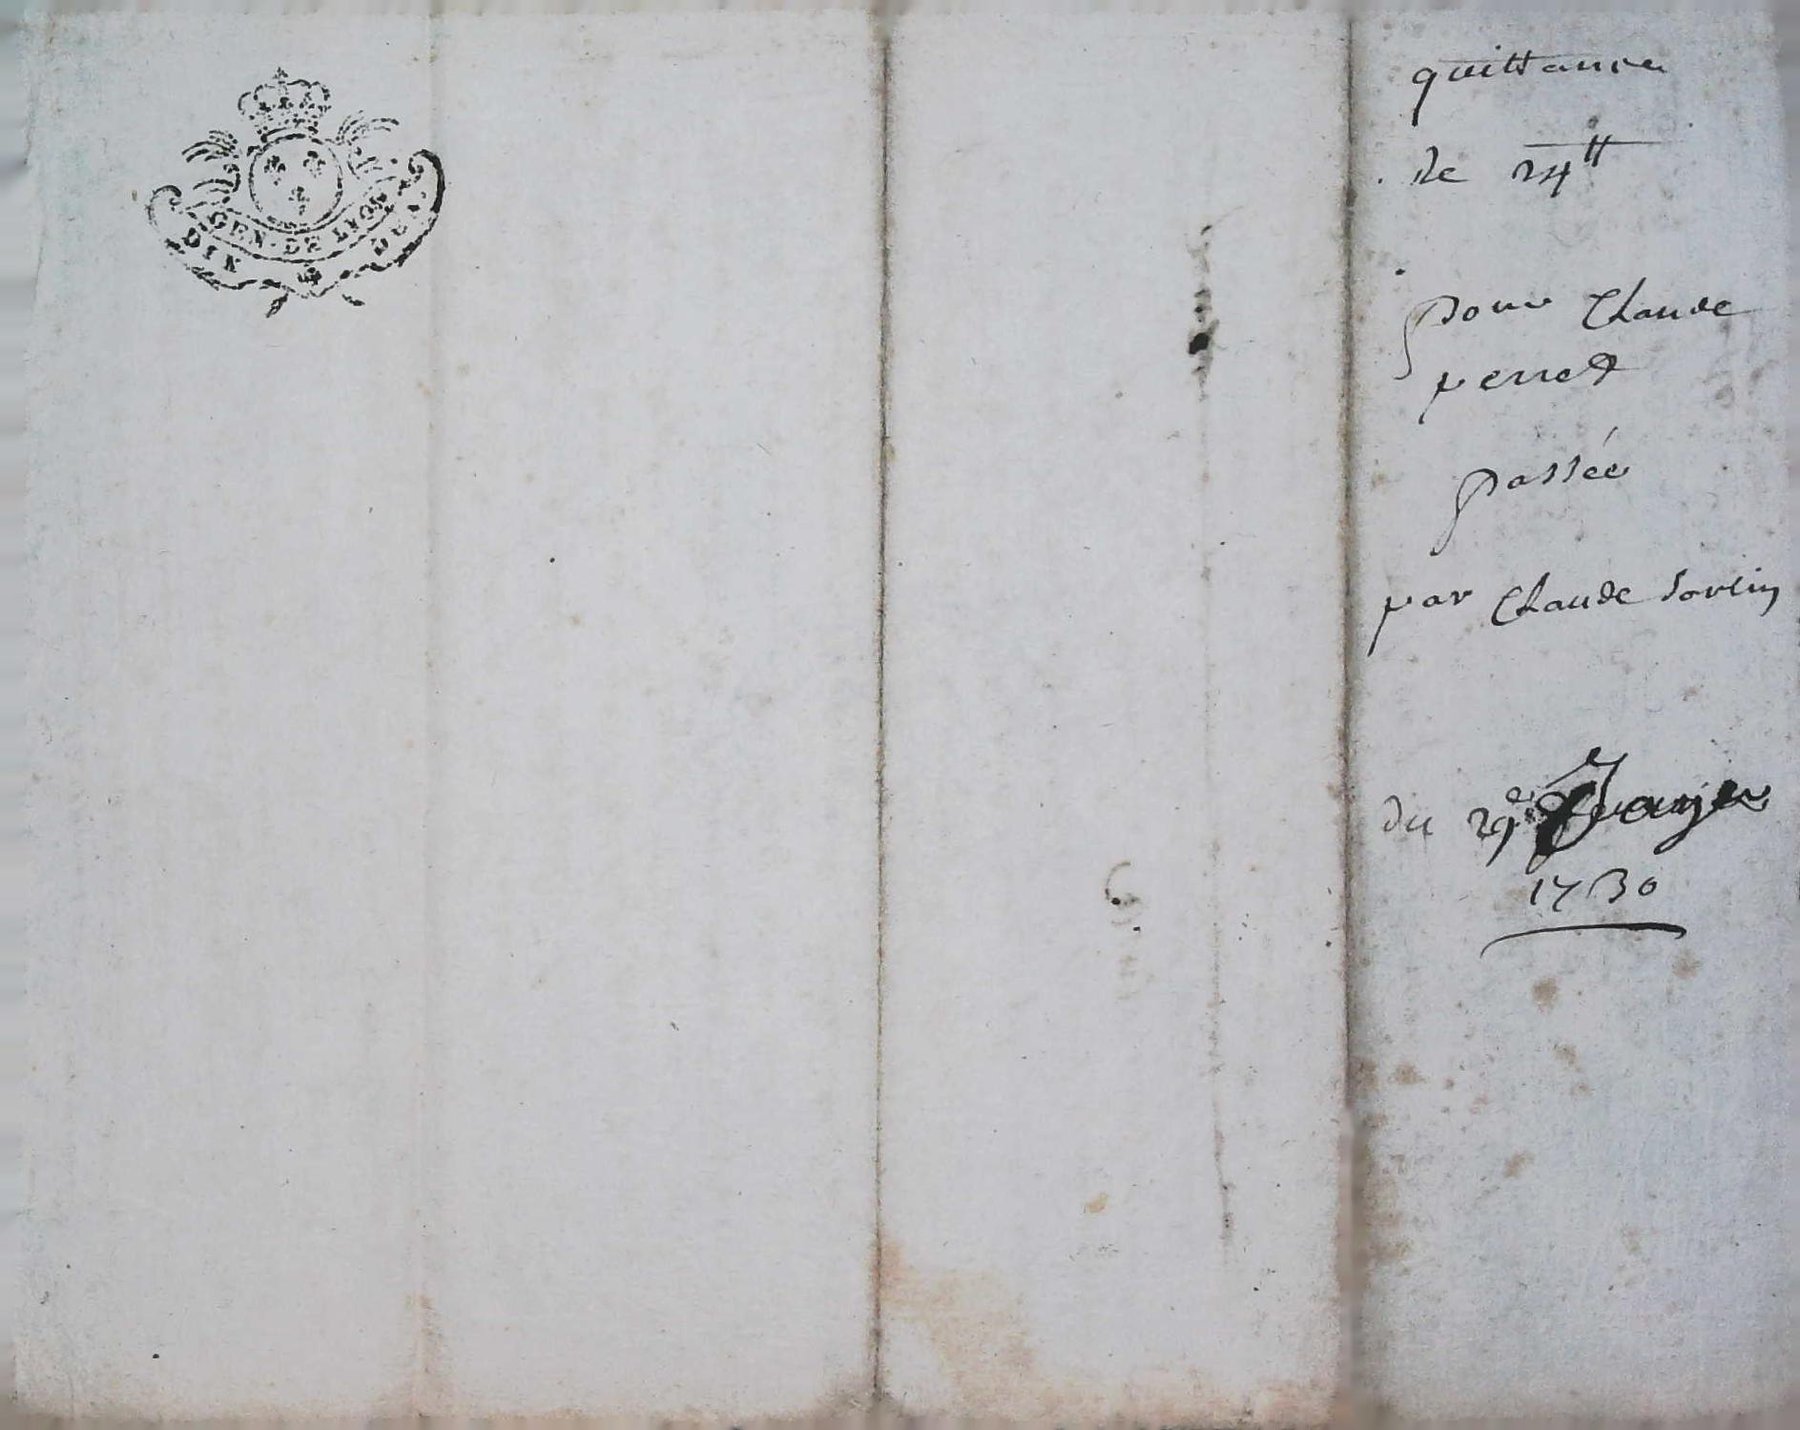 GEN. DE LYON
DIX DEN.
quittance
de 24 tt
pour Claude
perret
passée
par Claude Sorlin
du 29e Janvier
1730